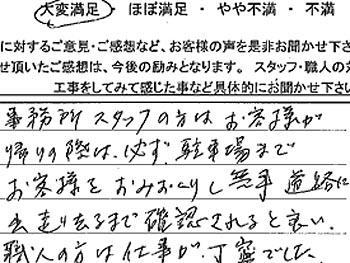 大変満足 ・ ほぼ満足 ・ やや不満 ・ 不満
に対するご意見・ご感想など、お客様の声を是非お聞かせ下さ
せ頂いたご感想は、今後の励みとなります。スタッフ・職人の対
工事をしてみて感じた事など具体的にお聞かせ下さい
事務所スタッフの方は お客様が
帰りの際は、必ず 駐車場まで
お客様を おみおくりし 無事 道路に
走り去るまで 確認されると良い.
職人の方は仕事が、丁寧でした.